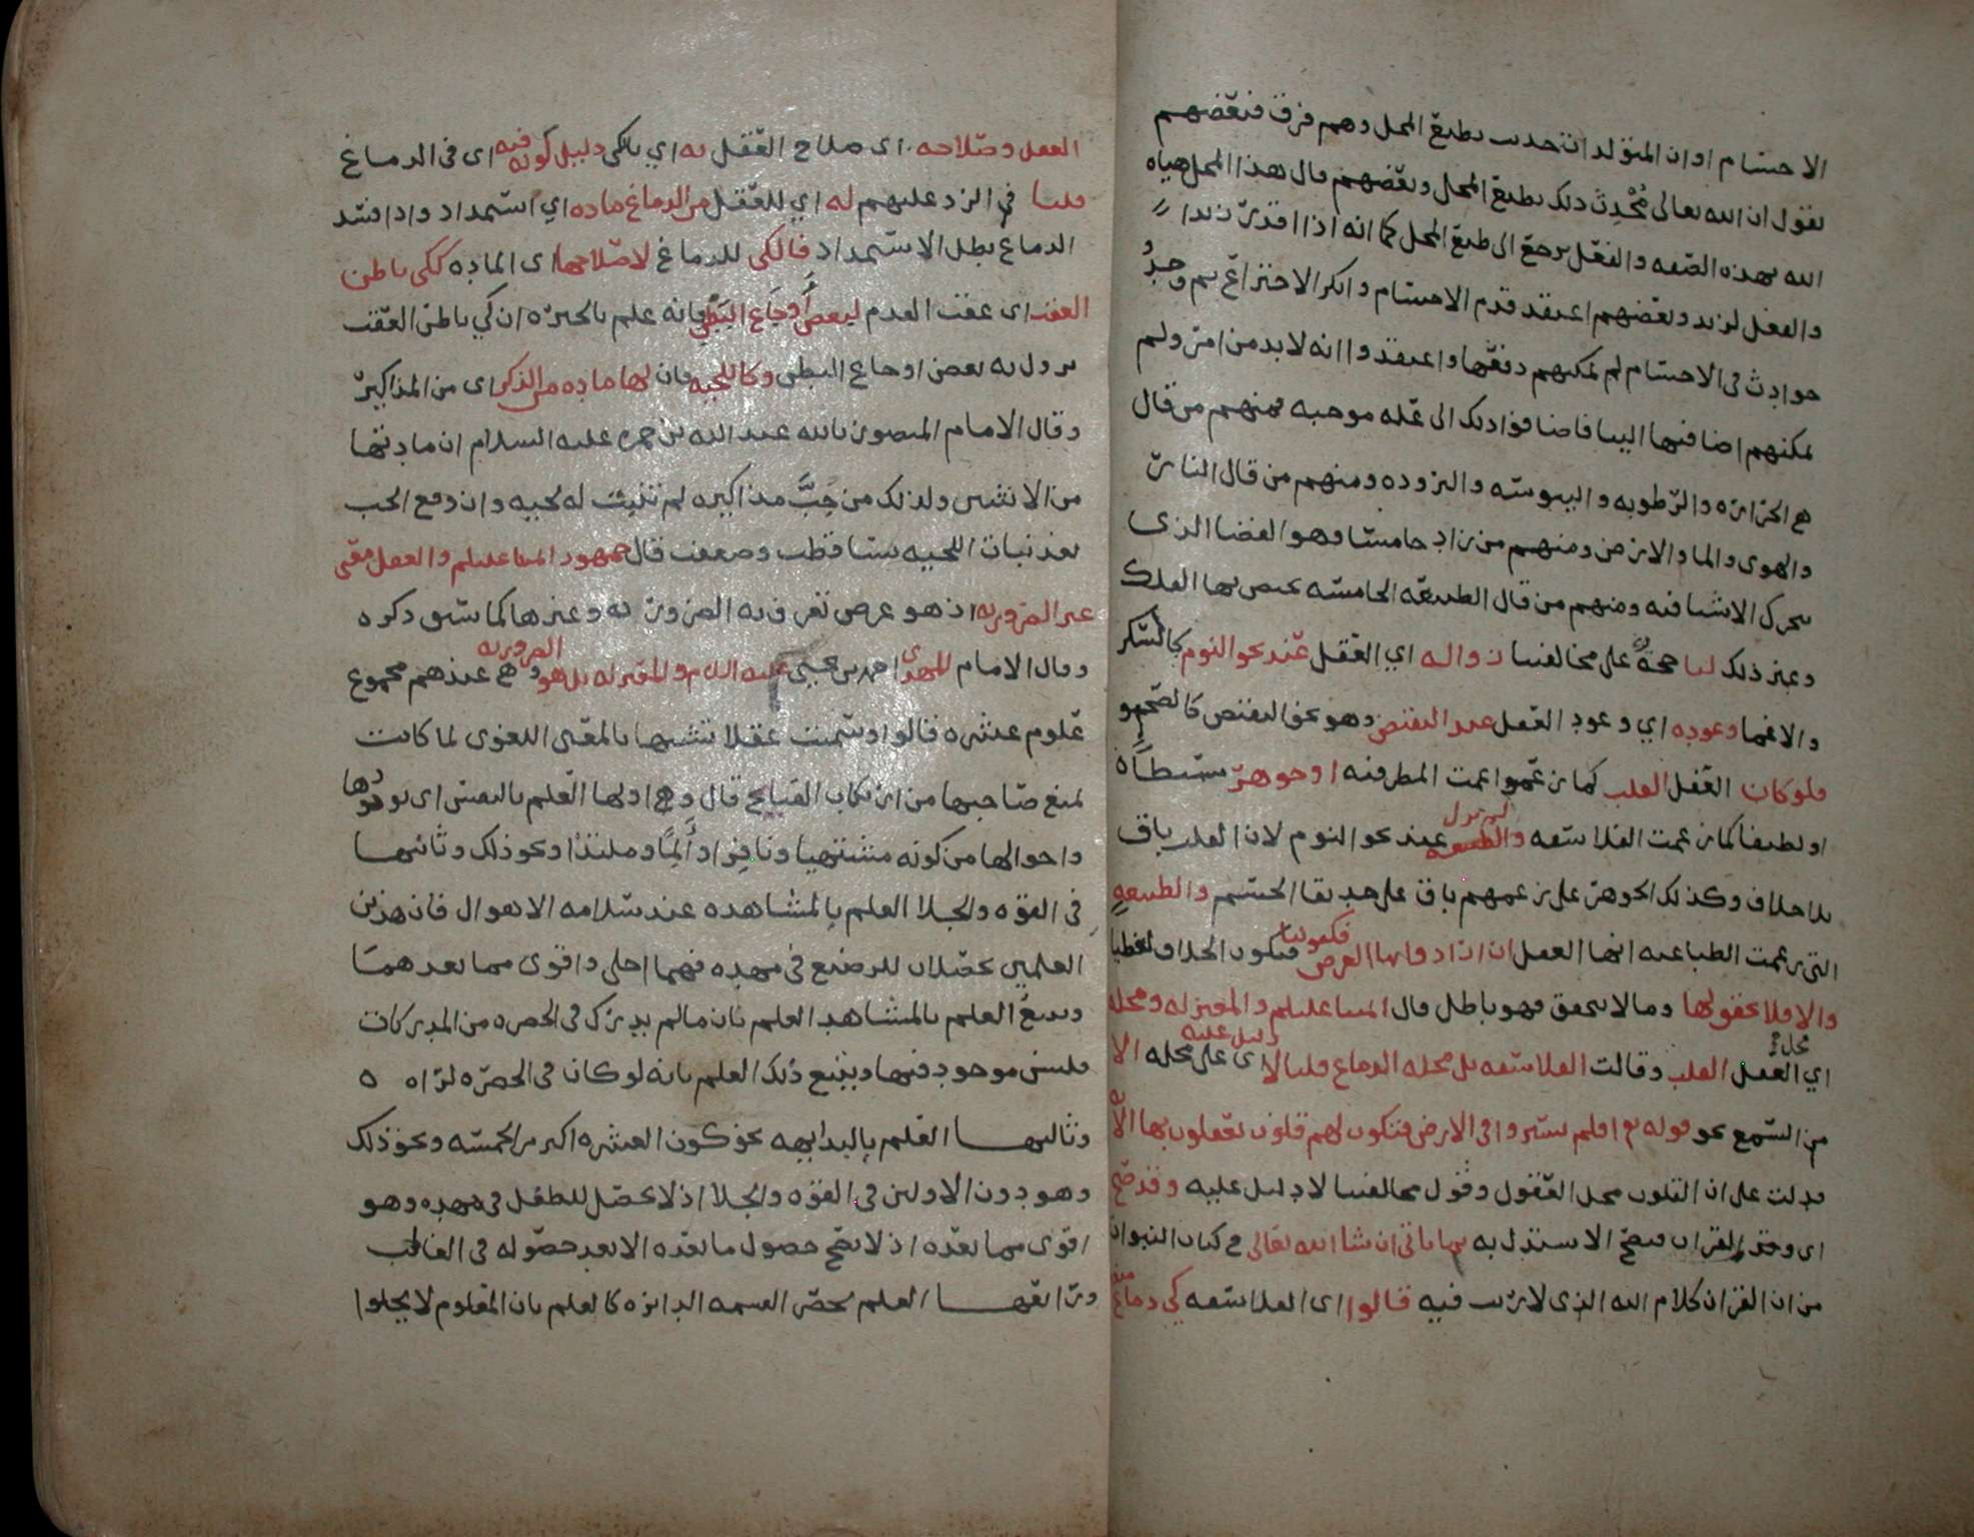 الاجسام او ان المتولدات تحدث بطبع المحل وهم فرق فبعضهم
يقول ان الله تعالى مُحْدِث ذلك بطبع المحل وبعضهم قال هذا المحل هيأه
الله بهذه الصفه والفعل يرجع الى طبع المحل كما انه اذا اقدر زيدا
والفعل لزيد وبعضهم اعتقد قدم الاجسام وانكر الاختراع ثم وجدُ
حوادث في الاجسام لم يمكنهم دفعها واعتقدوا انه لا بد من امر ولم
يمكنهم اضافتها الينا فاضافوا ذلك الى عله موجبه فمنهم من قال
هي الحراره والرطوبه واليبوسه والبروده ومنهم من قال النار
والهوى والما والارض ومنهم من زاد خامسا وهو الفضا الذي
يتحرك الاشيا فيه ومنهم من قال الطبيعه الخامسه يختص بها الفلك
وغير ذلك لنا حجةً على مخالفينا زواله اي العقل عند نحو النوم كالسكر
والاغما وعوده اي وعود العقل عند النقيض وهو نحو النقيض كالصحو
فلو كان العقل القلب كما زعموا عمت المطرفيه او جوهر بسيطاً
او لطيفا كما زعمت الفلاسفه والطبيعه لم يزل عند نحو النوم لان القلب باق
بلا خلاف وكذلك الجوهر على زعمهم باق على حد بقا الجسم والطبيعه
التي زعمت الطباعيه انها العقل ان ارادوا بها العرض فكقولنا فيكون الخلاف لفظيا
والا فلا تحقق لها وما لا يتحقق فهو باطل قال ائمتنا عليلم والمعتزله ومحله
اي العقل محله القلب وقالت الفلاسفه بل محله الدماغ قلنا لا دليل عليه اى على محله الا
من السمع نحو قوله تع افلم يسيروا في الارض فتكون لهم قلوب يعقلون بها الآ
فدلت على ان القلوب محل العقول وقول مخالفينا لا دليل عليه وقد صح
اى وقد القران فيصح الاستدل به بما ياتي ان شا الله تعالى في كتاب النبوات
من ان القران كلام الله الذي لا ريب فيه قالوا اى الفلاسفه كي دماغ
العقل وصلاحه اى صلاح العقل به اي بالكي دليل كونه فيه اى في الدماغ
قلنا في الرد عليهم له اي للعقل من الدماغ ماده اي استمداد واذا فسد
الدماغ بطل الاستمداد فالكى للدماغ لاصلاحها اى الماده ككى باطن
العقب اى عقب القدم لبعض أوجاع البَطْنِ فانه علم بالخبره ان كي باطن العقب
يزول به بعض اوجاع البطن وكاللحيه فان لها ماده من الذكر اى من المذاكير
وقال الامام المنصور بالله عبد الله بن حمزه عليه السلام ان مادتها
من الانثيين ولذلك من جَبَّ مذاكيره لم تنبت له لحيه وان وقع الجب
بعد نبات اللحيه تساقطت وضعفت قال جمهور ائمتنا عليلم والعقل معنى
غير الضروريه اذ هو عرض تعرف به الضروريه وغيرها كما سبق ذكره
وقال الامام المهدى احمد بن يحيى عليه السلام والمعتزله بل هو الضروريه وهي عندهم مجموع
علوم عشره قالوا وسميت عقلا تشبيها بالمعنى اللغوى لما كانت
تمنع صاحبها من ارتكاب القبايح قال وهي اولها العلم بالنفس اى بوجودها
واحوالها من كونه مشتهيا ونافرا وأَلِمًا وملتذا ونحو ذلك وثانيها
في القوه والجلا العلم بالمشاهده عند سلامه الاحوال فان هذين
العلمين يحصلان للرضيع في مهده فهما اجلى واقوى مما بعدهما
ويتبع العلم بالمشاهد العلم بان ما لم يدرك في الحضره من المدركات
فليس موجود فيها ويتبع ذلك العلم بانه لو كان في الحضره لراه ه
وثالثها العلم بالبدايهه نحو كون العشره اكبر من الخمسه ونحو ذلك
وهو دون الاولين في القوه والجلا اذ لا يحصل للطفل في مهده وهو
اقوى مما بعده اذ لا يصح حصول ما بعده الا بعد حصوله في الغالب
ورابعها العلم بحصر القسمه الدايره كالعلم بان المعلوم لا يخلوا